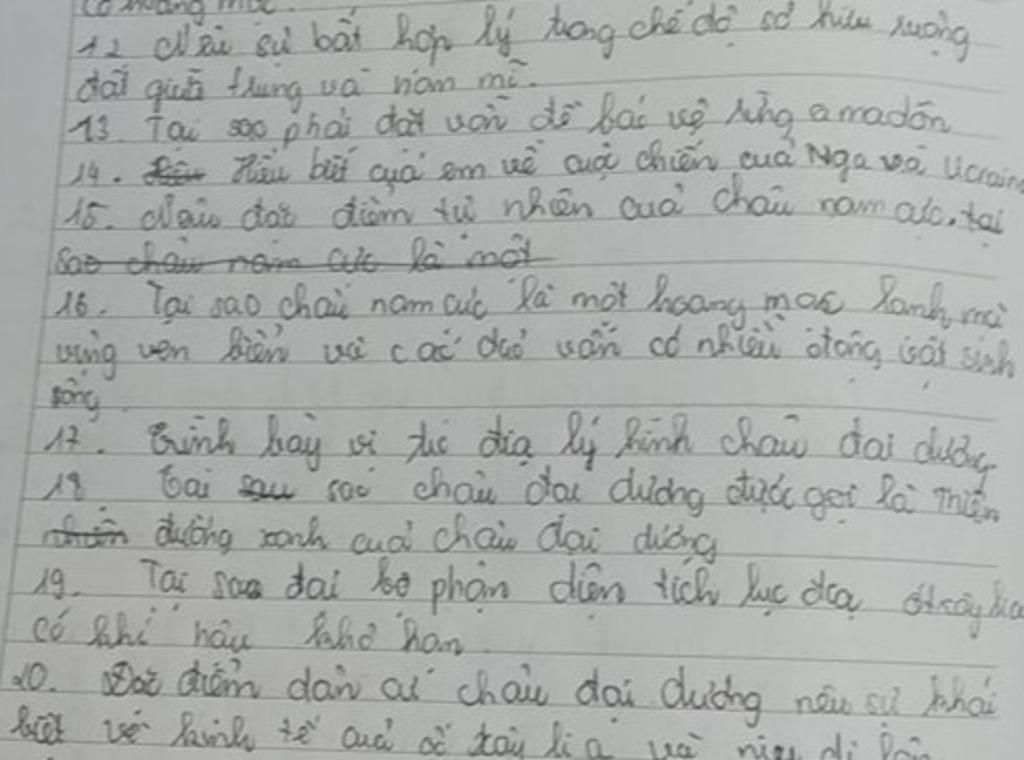 12 Nêu sự bất hợp lý trong chế độ sở hữu ruộng
đất giữa trung và nam mĩ.
13. Tại sao phải đặt vấn đề bảo vệ rừng amadôn
14. Hiểu biết của em về cuộc chiến của Nga và Ucraina
15. Nêu đặc điểm tự nhiên của châu nam cực. tại
sao châu nam cực là một
16. Tại sao châu nam cực là một hoang mạc lạnh mà
vùng ven biển và các đảo vẫn có nhiều động vật sinh
sống
17. Trình bày vị trí địa lý hình châu đại dương
18 Tại sao châu đại dương được gọi là Thiên
đường xanh của châu đại dương
19. Tại sao đại bộ phận diện tích lục địa
có khí hậu khô hạn
20. Đặc điểm dân cư châu đại dương nêu sự khác
biệt về kinh tế của và